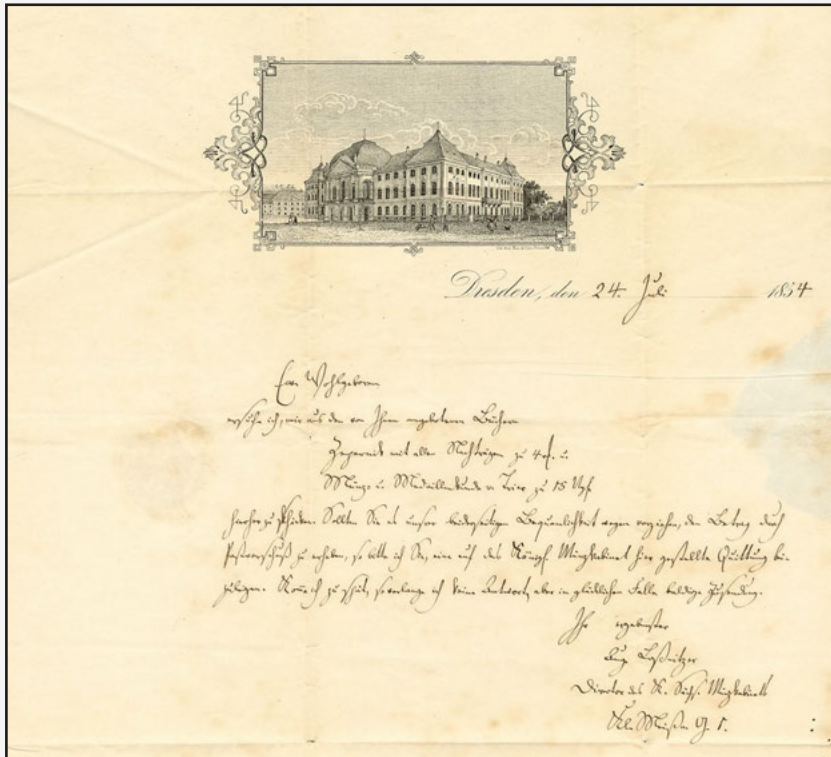 Dresden, den 24. Juli 1854
Ew. Wohlgeboren
ersuche ich, mir aus den von Ihnen angebotenen Büchern
Zepernick mit allen Nachträgen zu 4 u.
Münz- u. Medaillenkunde v. Trier zu 15
hierher zu schicken. Sollten Sie es unsrer beiderseitigen Bequemlichkeit wegen vorziehen, den Betrag durch
Postvorschuß zu erheben, so bitte ich Sie, eine auf das Königl. Münzkabinet hier gestellte Quittung bei-
zufügen. Komme ich zu spät, so verlange ich keine Antwort, aber im glücklichen Falle baldige Zusendung.
Ihr ergebenster
Director des K. Sächs. Münzkabinets